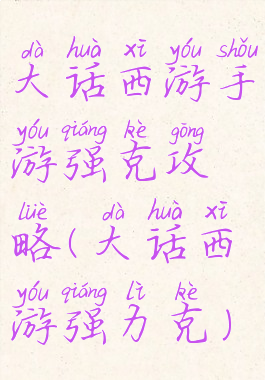 dà huà xī yóu shǒu
大话西游手
yóu qiáng kè gōng
游强克攻
lüè dà huà xī
略(大话西
yóu qiáng lì kè
游强力克)